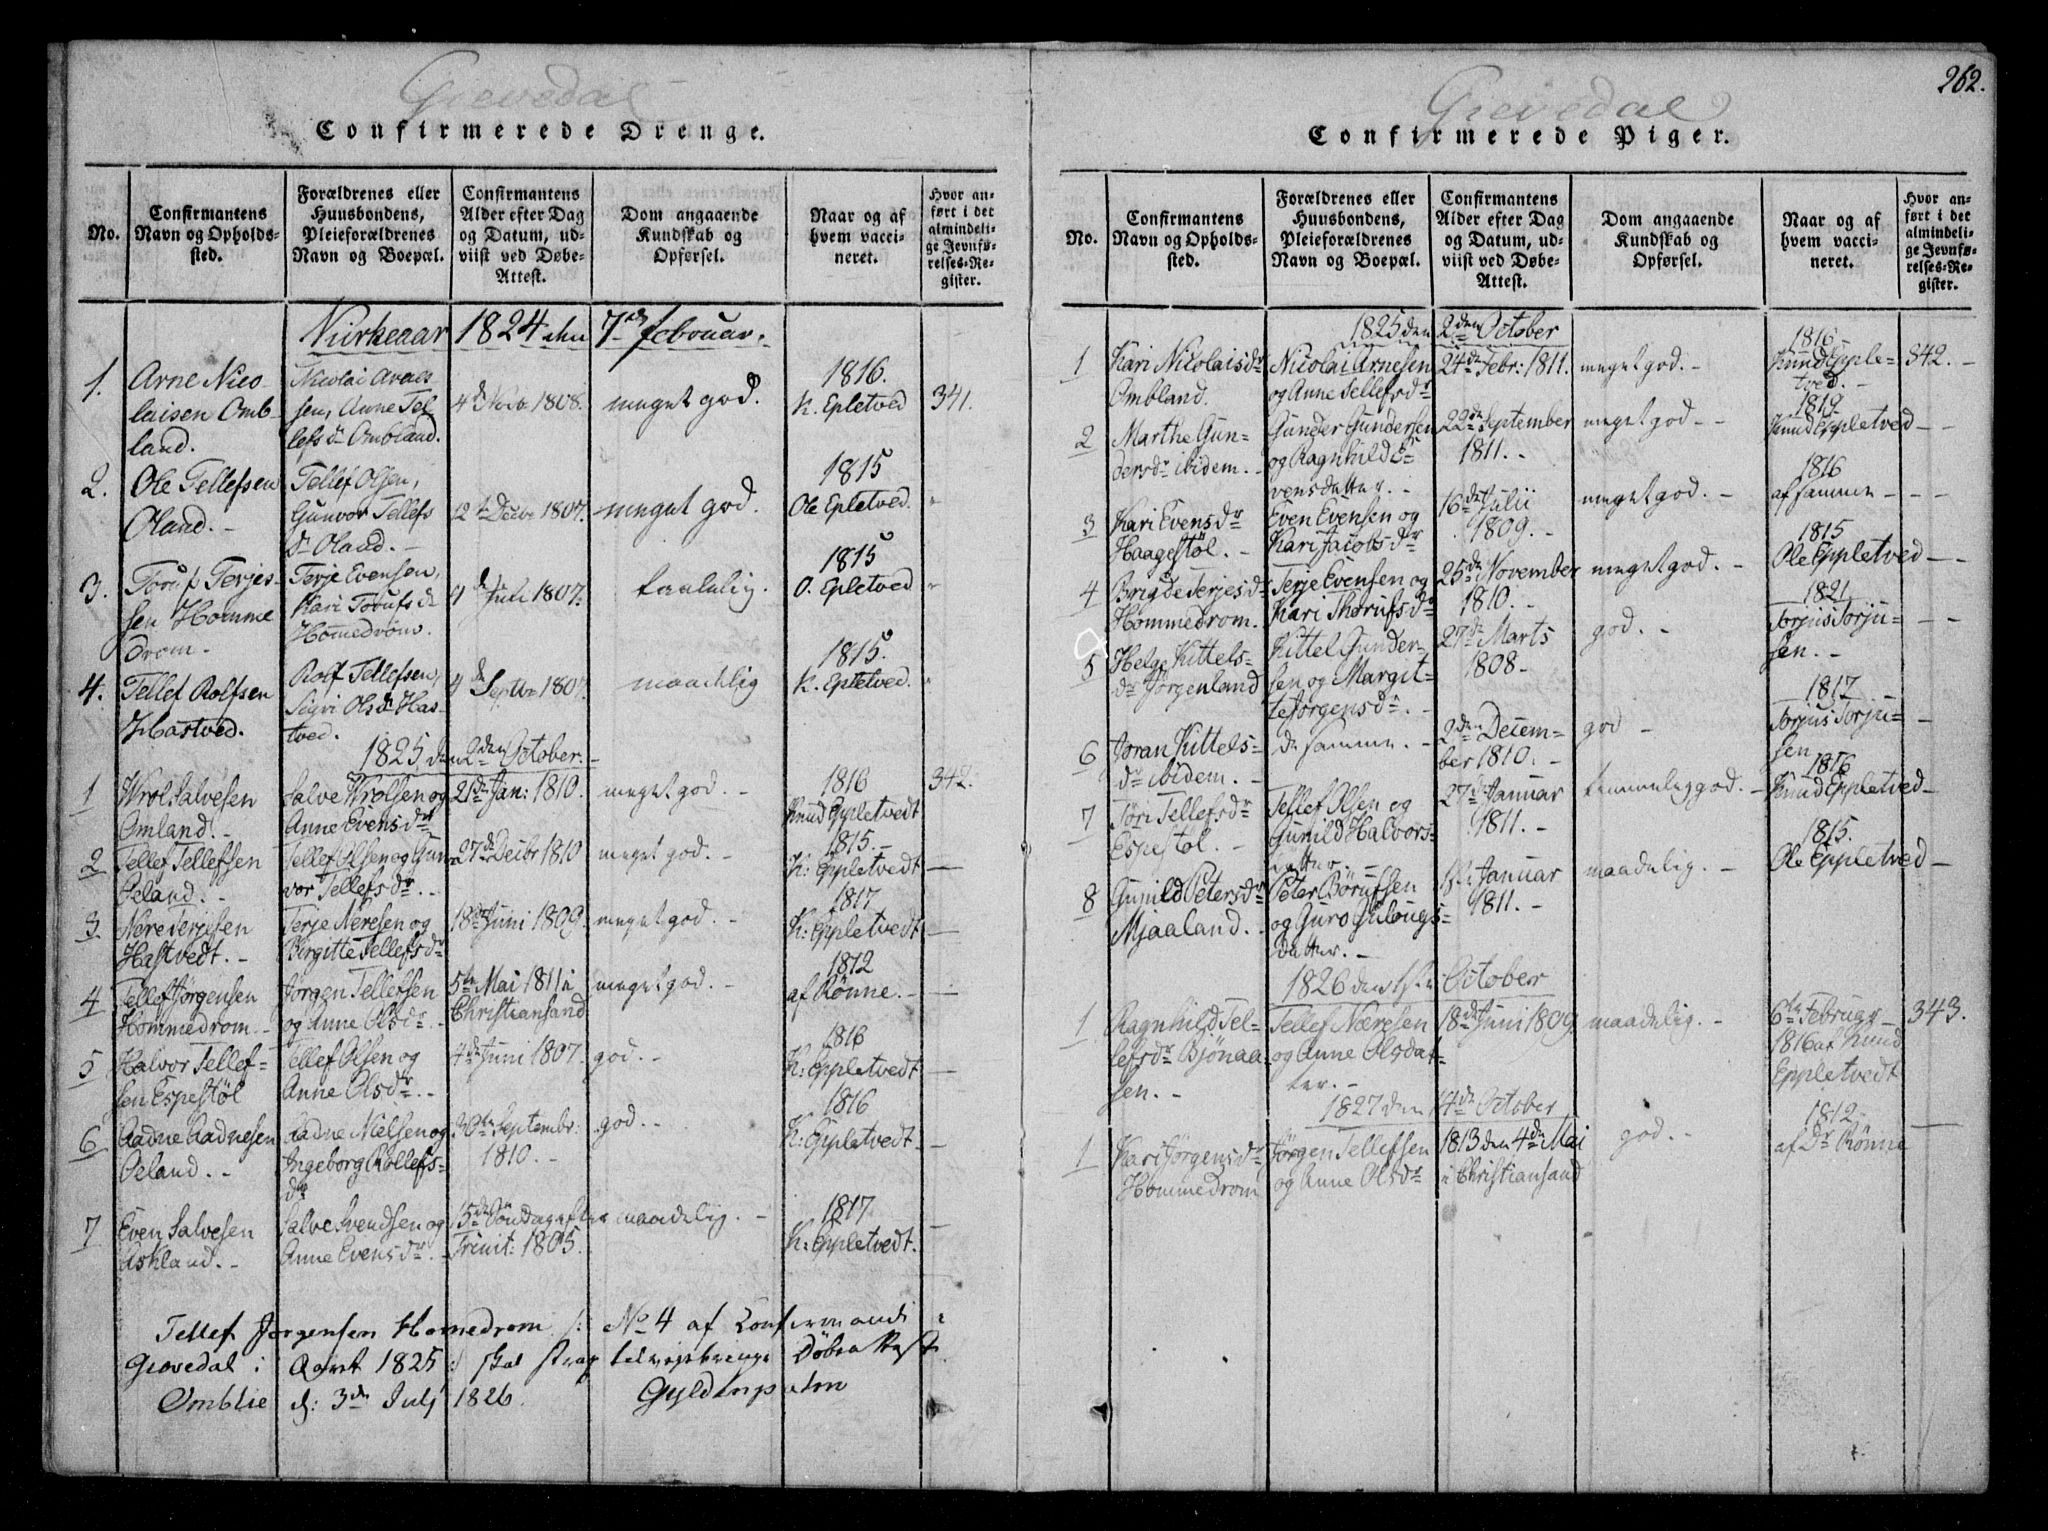 262.
Grevedal
Confirmerede Drenge.
No.
Confirmantens Navn og Opholds-sted.
Forældrenes eller Huusbondens, Pleieforældrenes Navn og Boepæl.
Confirmantens Alder efter Dag og Datum, ud-viist ved Døbe-Attest.
Dom angaaende Kundskab og Opførsel.
Naar og af hvem vacci-neret.
Hvor an-ført i det almindeli-ge Jevnfø-relses-Re-gister.
1824 den 7de
1. Arne Nico-
laisen Omb-
land.
Nicolai
sen, Anne Tel
lefs dr Ombland.
4de 1808.
meget god.
1816.
K. Epletved
341.
2. Ole Tellefsen
Oland.-
Tellef Olsen,
Gunvor Tellefs
dr Oland.-
12te 1807.
meget god.
1815
Ole Epletved.
3. Toruf Terjes-
sen Homme
drom-
Terje Evensen,
Kari Torufs dr
Hommedrom.
1807.
taalelig.
1815
O. Epletved
4. Tellef Rolfsen
Hastved.
Rolf Tellefsen,
Sigri Ols dr Has-
tved.
Septbr 1807.
maadelig
1815.
K. Epletved.
1825, den 2den October.
1 Wrol Salvesen
Omland.-
Salve Wrolsen og
Anne Evensdr
21de Jan: 1810.
meget god.-
1816
Knud Eppletvedt
342.
2 Tellef Tellefsen
Oeland.-
Tellef Olsen og Gun
vor Tellefsdr.-
27de Decbr 1810
meget god.-
1815.-
K: Eppletvedt
3 Nere Terjesen
Hastvedt.-
Terje Neresen og
Birgitte Tellefsdr
18de Juni 1809.
meget god.-
1817
K: Eppletvedt
4 Tellef Jørgensen
Hommedrom.-
Jørgen Tellefsen
og Anne Olsdr.-
5te Mai 1811 i
Christiansand
meget god.-
1812
af Rønne.-
5 Halvor Tellef=
sen Espestøl
Tellef Olsen og
Anne Olsdr.-
4de Juni 1807.
god.-
1816
K: Eppletvedt
6 Aadne Aadnesen
Oeland.-
Aadne Nielsen og
Ingeborg Rollefs-
dr
30te Septembr:
1810.-
god.-
1816
K: Eppletvedt
7 Even Salvesen
Askland.-
Salve Svendsen og
Anne Evensdr.-
15de Søndag efter
Trinit: 1805.
maadelig.-
1817
K: Eppletvedt.
Tellef Jørgensen Homedrom No 4 af Confirmandi
Grøvedal i Aaret 1825 skal strax Døbeattest
Omblie d: 3de Julj 1826. Gyldenpalm
Grevedal
Confirmerede Piger.
No.
Confirmantens Navn og Opholds-sted.
Forældrenes eller Huusbondens, Pleieforældrenes Navn og Boepæl.
Confirmantens Alder efter Dag og Datum, ud-viist ved Døbe-Attest.
Dom angaaende Kundskab og Opførsel.
Naar og af hvem vacci-neret.
Hvor an-ført i det almindeli-ge Jevnfø-relses-Re-gister.
1825 den 2den October
1 Kari Nicolaisdr
Ombland.
Nicolai Arnesen
og Anne Tellefsdr
24de Febr: 1811.
meget god.-
1816.-
Knud Epple=
tved.-
342.-
2 Marthe Gun-
dersdr ibidem.-
Gunder Gundersen
og Ragnhild E=
vensdatter.-
22de September
1811.-
meget god.--
1819
Knud Eppletved
3 Kari Evensdr
Haagestøl.-
Even Evensen og
Kari Jacobsdr
16de Julii
1809.-
meget god.-
1816
af samme
4 Brigde Terjesdr
Hommedrom.
Terje Evensen og
Kari Thorufsdr
25de November
1810.-
meget god.-
1815
Ole Eppletved
5 Helge Kittels-
dr Jørgenland
Kittel Gunder-
sen og Margit-
te Jørgensdr.-
27de Marts
1808-
god.-
1821
Torjus Torju=
sen.-
6 Joran Kittels=
dr ibidem.-
de samme.-
2den Decem-
ber 1810.-
god-
1817
Torjus Torju=
sen
7 Tøri Tellefsdr
Espestøl.-
Tellef Olsen og
Gunild Halvors-
datter.-
27de Januar
1811.-
temmelig god.-
1816
Knud Eppletved
8 Gunild Petersdr
Mjaaland.-
Peter Børufsen
og Guro
datter.-
Januar
1811.-
maadelig.-
1815.
Ole Eppletved
1826 den 1ste October
1 Ragnhild Tel-
lefsdr Bjønaa-
sen.-
Tellef Næresen
og Anne Olsdat-
ter.-
18de Juni 1809
maadelig.-
6te Februar
1816 af Knud
Eppletvedt
343.
1827 den 14de October
1 Kari Jørgensdr
Hommedrom
Jørgen Tellefsen
og Anne Olsdr
1813 den 4de Mai
i Christiansand
god.-
1812
af Dr Rønne